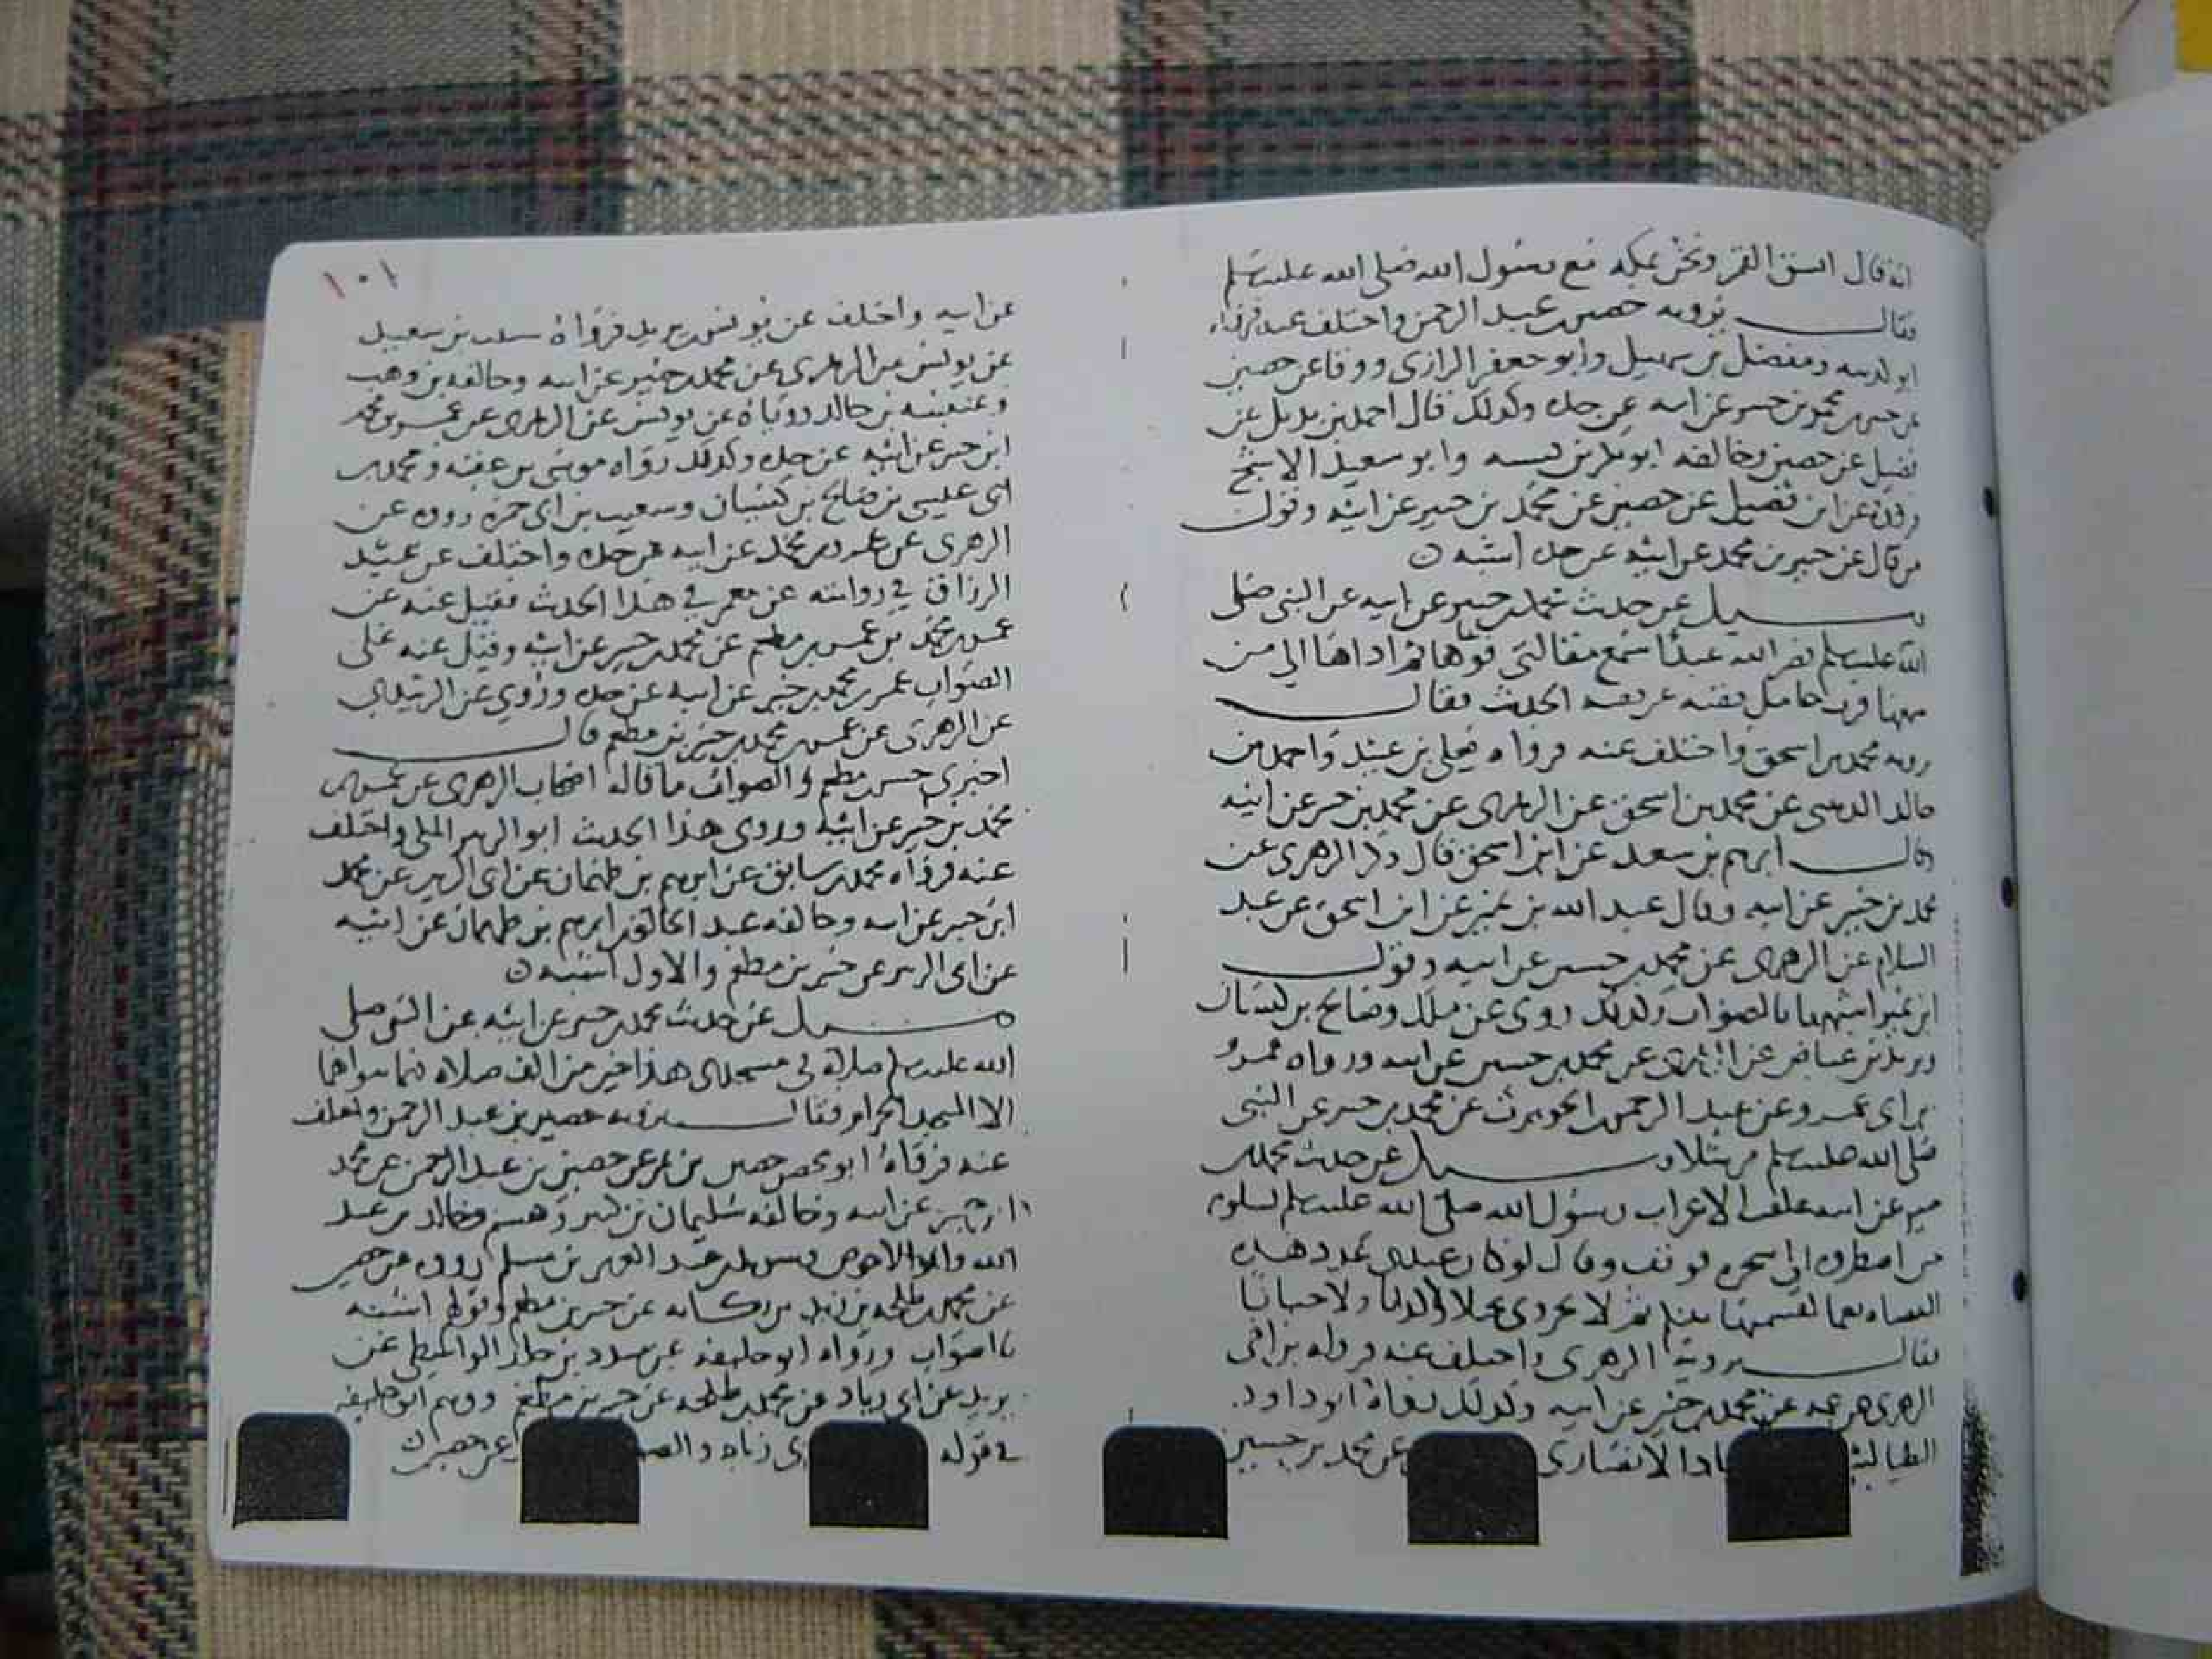 انه قال انشق القمر ونحن بمكه مع رسول الله صلى الله عليه وسلم
فقال يرويه حصين بن عبد الرحمن واختلف عنه فرواه
ابو كدينه ومفضل بن مهلهل وابو جعفر الرازى وورقا عن حصين
عن جبير بن محمد بن جبير عن ابيه عن جده وكذلك قال احمد بن بديل عن
فضيل عن حصين وخالفه ابو بكر بن ابى شيبه وابو سعيد الاشج
روياه عن ابن فضيل عن حصين عن محمد بن جبير عن ابيه وقول
من قال عن جبير بن محمد عن ابيه عن جده اشبه ه
وسيل عن حديث محمد بن جبير عن ابيه عن النبى صلى
الله عليه وسلم نضر الله عبدا سمع مقالتى فوعاها ثم اداها الى من
فرب حامل فقه غير فقيه الحديث فقال
رويه محمد بن اسحق واختلف عنه فرواه يعلى بن عبيد واحمد بن
خالد الوهبى عن محمد بن اسحق عن الزهرى عن محمد بن جبير عن ابيه
وقال ابرهيم بن سعد عن ابن اسحق قال ذكر الزهرى عن
محمد بن جبير عن ابيه وقال عبد الله بن نمير عن ابن اسحق عن عبد
السلام عن الزهرى عن محمد بن جبير عن ابيه وقول
ابن نمير اشبهها بالصواب وكذلك روى عن ملك وصالح بن كيسان
ويزيد بن عياض عن الزهرى عن محمد بن جبير عن ابيه ورواه عمرو
بن ابى عمرو عن عبد الرحمن بن الحويرث عن محمد بن جبير عن النبى
صلى الله عليه وسلم مرسلا وسيل عن حديث محمد بن
جبير عن ابيه علقت الاعراب رسول الله صلى الله عليه وسلم يسلونه
حتى اضطروه الى سمره فوقف وقال لو كان عندى عدد هذه
العضاه نعما لقسمتها بينكم ثم لا تجدونى بخيلا ولا كذابا ولا جبانا
فقال يرويه الزهرى واختلف عنه فرواه بن اخى
الزهرى عن عمه عن محمد بن جبير عن ابيه وكذلك رواه ابو داود
الطيالسى الانصارى عن محمد بن جبير
١٠١
عن ابيه واختلف عن يونس بن يزيد فرواه شبيب بن سعيد
عن يونس عن الزهرى عن محمد بن جبير عن ابيه وخالفه بن وهب
وعنبسه بن خالد روياه عن يونس عن الزهرى عن عمر بن محمد
ابن جبير عن ابيه عن جده وكذلك رواه موسى بن عقبه ومحمد بن
ابى عتيق وصالح بن كيسان وشعيب بن ابى حمزه رووه عن
الزهرى عن عمر بن محمد عن ابيه عن جده واختلف عن عبد
الرزاق في روايته عن معمر في هذا الحديث فقيل عنه عن
عمر بن محمد بن عمر بن مطعم عن محمد بن جبير عن ابيه وقيل عنه على
الصواب عمر بن محمد بن جبير عن ابيه عن جده وروي عن الزبيدى
عن الزهرى عن عمر بن محمد بن جبير بن مطعم قال
اخبرنى جبير بن مطعم والصواب ما قاله اصحاب الزهرى عن عمر بن
محمد بن جبير عن ابيه وروى هذا الحديث ابو الزبير المكى واختلف
عنه فرواه محمد بن سابق عن ابرهيم بن طهمان عن ابى الزبير عن محمد
ابن جبير عن ابيه وخالفه عبد الخالق بن ابرهيم بن طهمان عن ابيه
عن ابى الزبير عن جبير بن مطعم والاول اشبه ه
وسيل عن حديث محمد بن جبير عن ابيه عن النبى صلى
الله عليه وسلم صلاة فى مسجدى هذا خير من الف صلاه فيما سواهما
الا المسجد الحرام فقال يرويه حصين بن عبد الرحمن واختلف
عنه فرواه ابو محصن حصين بن نمير عن حصين بن عبد الرحمن عن محمد
ابن جبير عن ابيه وخالفه سليمان بن كثير وهشيم وخالد بن عبد
الله وابو الاحوص وعبد العزيز بن مسلم رووه عن حصين
عن محمد بن طلحه بن يزيد بن ركانه عن جبير بن مطعم وقولهم اشبه
بالصواب ورواه ابو خليفه عن مسدد بن خالد الواسطى عن
يزيد عن ابى زياد عن محمد بن طلحه عن جبير بن مطعم ووهم ابو خليفه
في قوله ابى زياد والصواب عن حصين